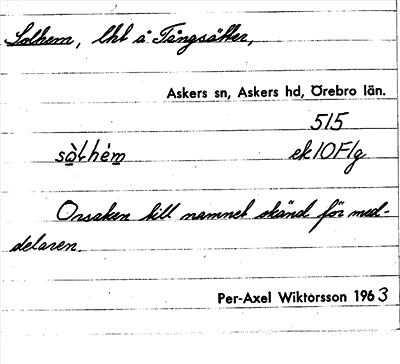 Solhem, lht å Tångsätter,
Askers sn, Askers hd, Örebro län.
515
sò̀lhém ek 10 F1g
Orsaken till namnet okänd för med-
delaren.
Per-Axel Wiktorsson 1963